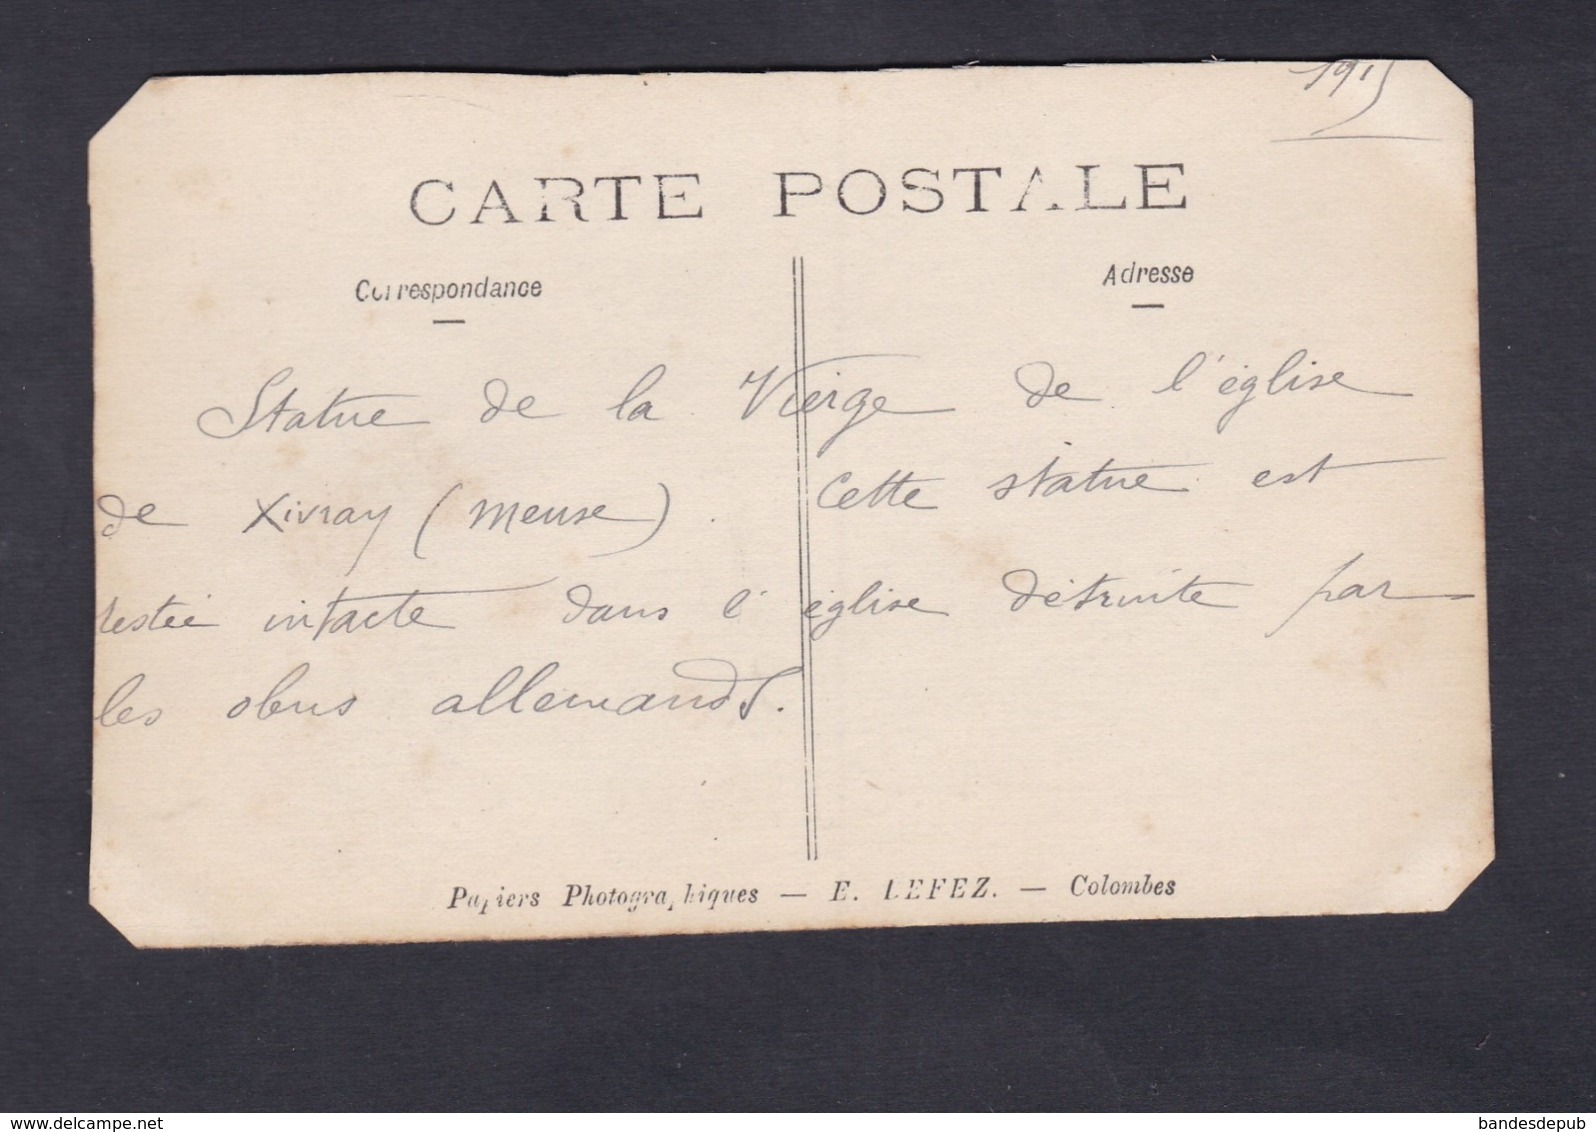 1915
CARTE POSTALE
Correspondance
Adresse
Statue de la Vierge de l'église
de Xivray (Meuse). Cette statue est
restée intacte dans l'église détruite par
les obus allemands.
Papiers Photographiques — E. LEFEZ. — Colombes
www.delcampe.net
bandesdepub